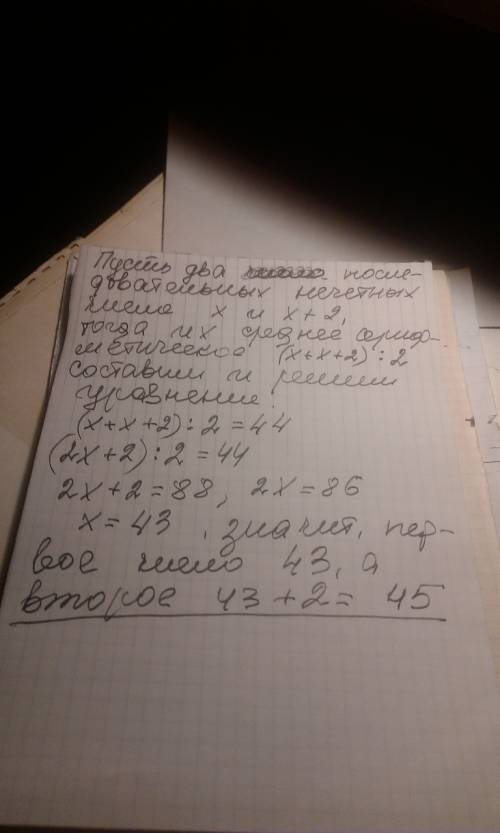 Пусть два после-
довательных нечетных
числа x и x+2,
тогда их среднее ариф-
метическое (x+x+2):2
составим и решим
уравнение.
(x+x+2):2=44
(2x+2):2=44
2x+2=88, 2x=86
x=43, значит, пер-
вое число 43, а
второе 43+2= 45